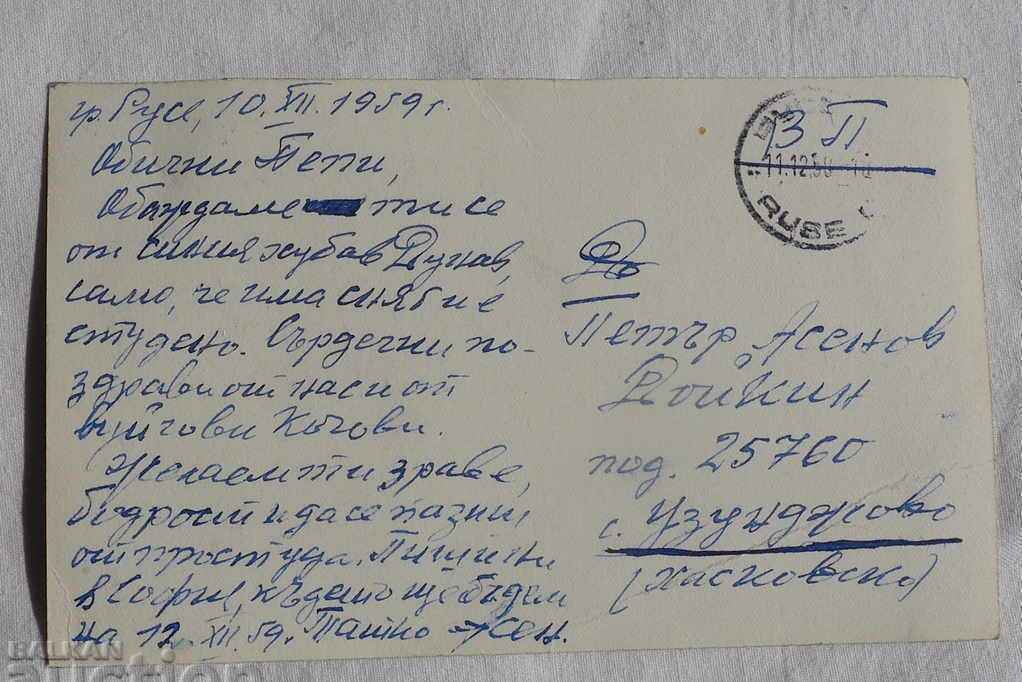 гр. Русе, 10.XII.1959 г.
Обични Пепи,
Обаждаме ти се
от синия хубав Дунав,
само, че има сняг и е
студено. Сърдечни по-
здрави от нас и от
вуйчови Кочови.
Желаем ти здраве,
бодрост и да се пазиш
от простуда. Пиши ни
в София, където ще бъдем
на 12.XII.59. Татко Асен.
ЗП
11.12.59
RUSE
До
Петър Асенов
Дойкин
под. 25760
с. Узунджово
(Хасковско)
BALKAN
auction